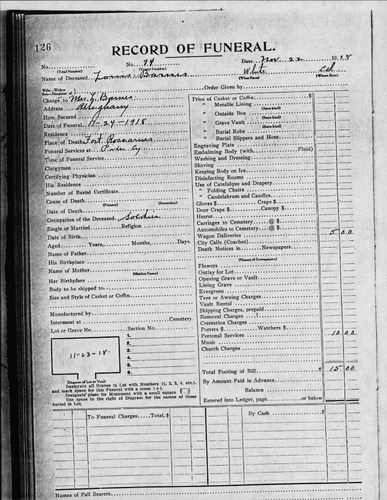 126
RECORD OF FUNERAL.
No. No. 74 Date Nov. 22 1918
(Total Number) (Year's Number)
Name of Deceased Barnes White
Order Given by
Charge to Mrs. Barnes
Address Alleghany
How Secured
Date of Funeral 11-24-1918
Residence
Place of Death Fort Rosecrans
Funeral Services at
Time of Funeral Service
Clergyman
Certifying Physician
His Residence
Number of Burial Certificate
Cause of Death
(Primary) (Secondary)
Date of Death
Occupation of the Deceased Soldier
Single or Married Religion
Date of Birth
Aged Years, Months, Days.
Name of Father
His Birthplace
Name of Mother
(Maiden Name)
Her Birthplace
Body to be shipped to
Size and Style of Casket or Coffin
Manufactured by
Interment at Cemetery.
Lot or Grave No. Section No.
1.
2.
3.
4.
5.
6.
11-23-18
Diagram of Lot or Vault
Designate all Graves in Lot with Numbers (1, 2, 3, 4, etc.)
and mark space for this Funeral with a cross (+).
Designate place for Monument with a small square
Use space to the right of Diagram for the names of those
buried in Lot.
Price of Casket or Coffin $
" Metallic Lining
" Outside Box
" Grave Vault
" Burial Robe
" Burial Slippers and Hose
Engraving Plate
Embalming Body (with Fluid)
Washing and Dressing
Shaving
Keeping Body on Ice
Disinfecting Rooms
Use of Catafalque and Drapery
" Folding Chairs
" Candelabrum and Candles
Gloves $ Crape $
Door Crape $ Canopy $
Hearse
Carriages to Cemetery @ $
Automobiles to Cemetery @ $
Wagon Deliveries 5 00
City Calls (Coaches)
Death Notices in Newspapers
(Names of Newspapers)
Flowers
Outlay for Lot
Opening Grave or Vault
Lining Grave
Evergreen
Tent or Awning Charges
Vault Rental
Shipping Charges, prepaid
Removal Charges
Cremation Charges
Porters $ Watchers $
Personal Services 10 00
Music
Church Charges
Total Footing of Bill $ 15 00
By Amount Paid in Advance
Balance
Entered into Ledger, page or below.
To Funeral Charges Total, $ By Cash $
Names of Pall Bearers